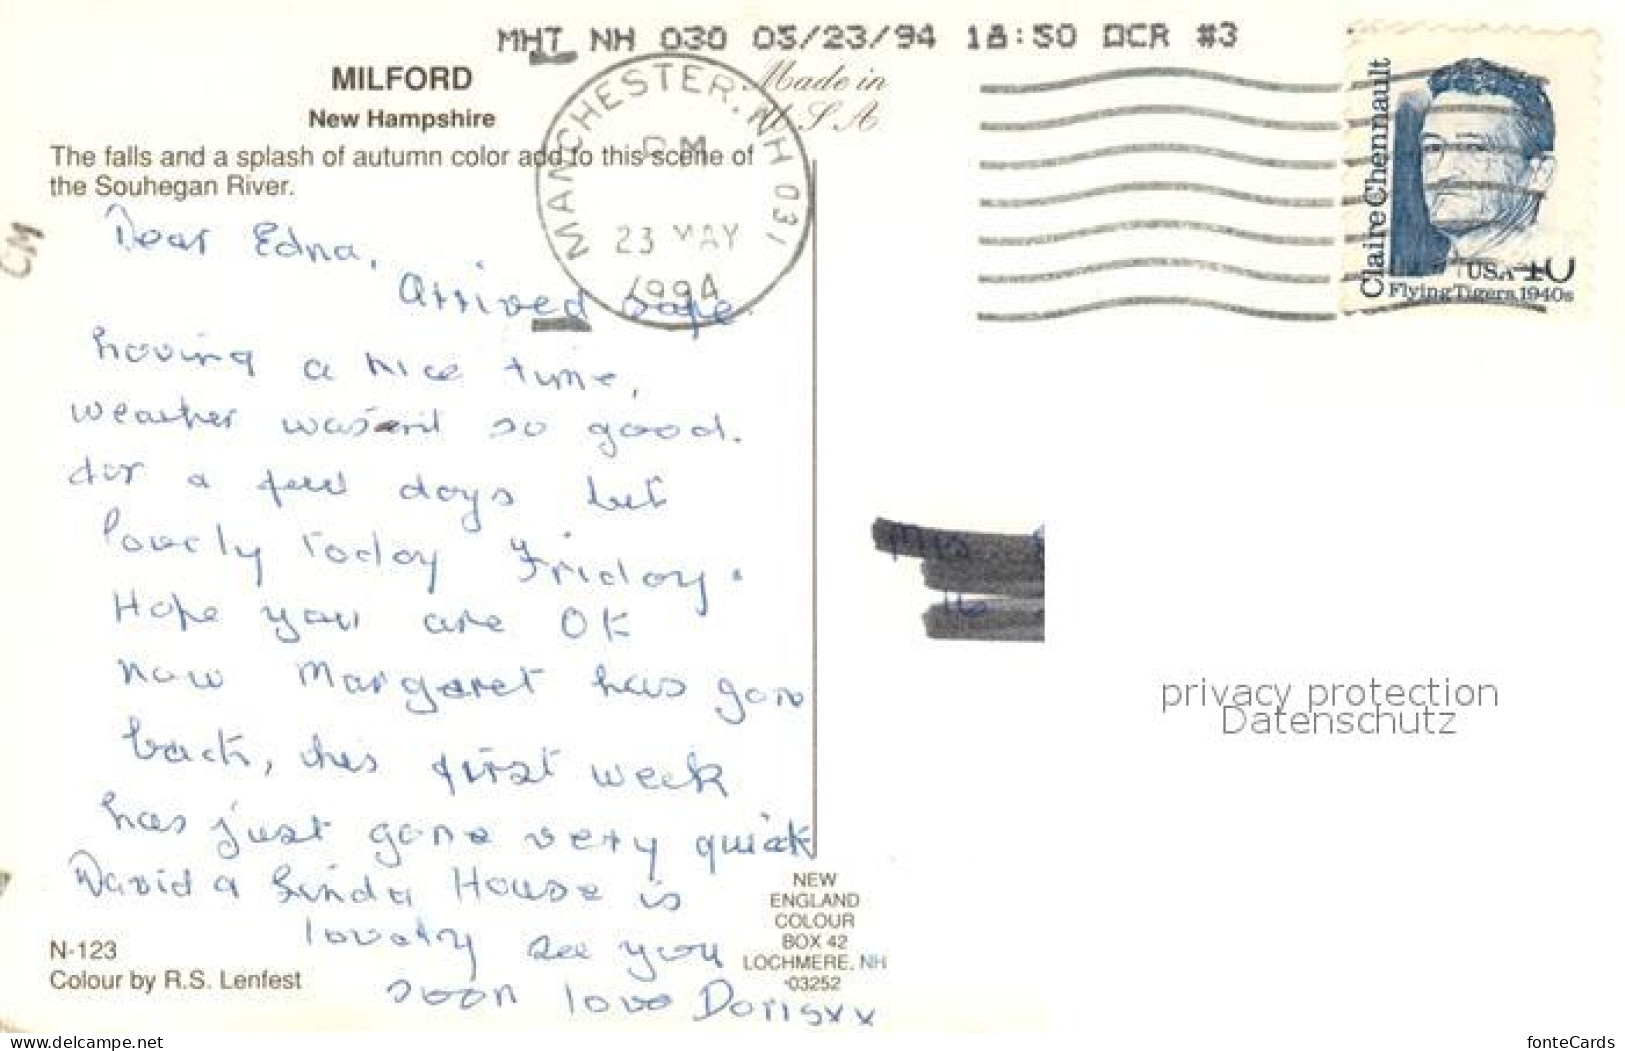 MHT NH 030 05/23/94 18:50 OCR #3
MILFORD
New Hampshire
The falls and a splash of autumn color add to this scene of
the Souhegan River.
Made in
U.S.A.
MANCHESTER. NH 031
PM
23 MAY
1994
Claire Chennault
USA 40
Flying Tigers, 1940s
CM
Dear Edna,
Arrived safe
having a nice time,
weather wasent so good.
for a few days but
lovely today Friday.
Hope you are OK
now Margaret has gon
back, this first week
has just gone very quick
David a Linda House is
lovely see you
soon love Doris xx
NEW
ENGLAND
COLOUR
BOX 42
LOCHMERE, NH
03252
N-123
Colour by R.S. Lenfest
privacy protection
Datenschutz
www.delcampe.net
fonteCards